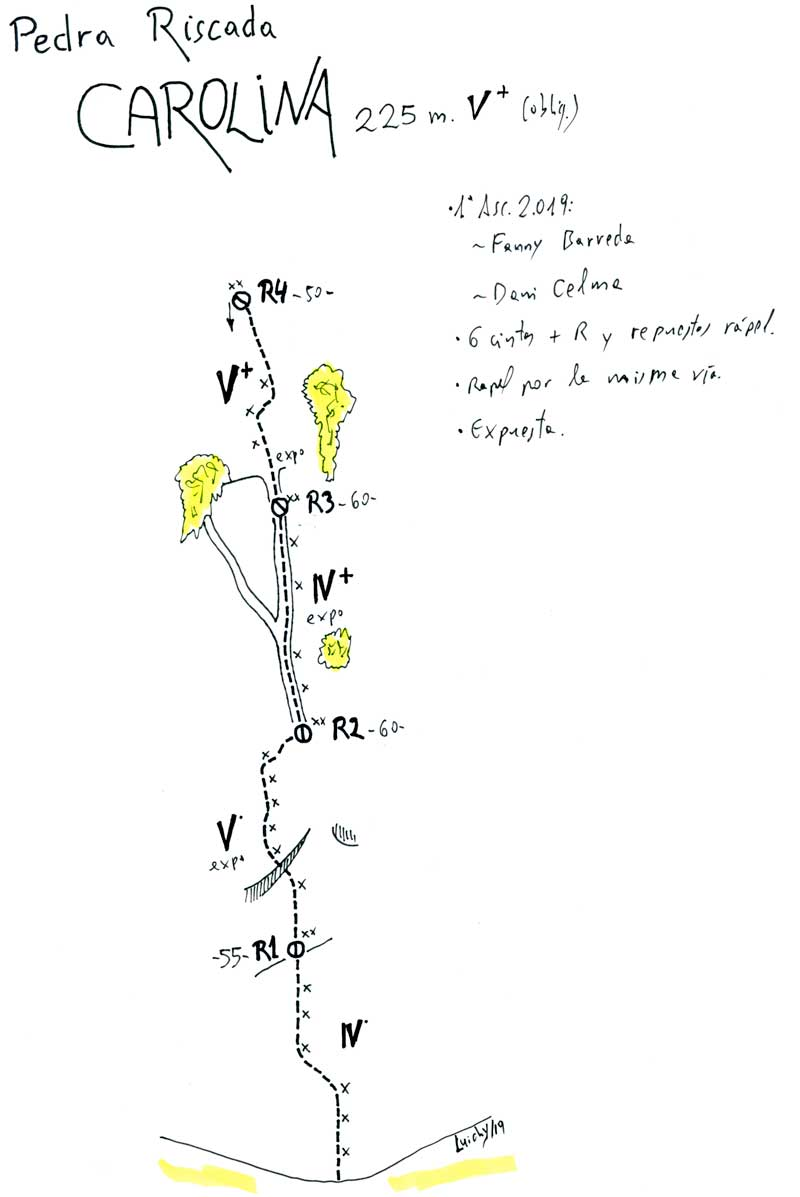 Pedra Riscada
CAROLINA 225 m. V+ (oblig.)
• 1ª Asc. 2.019:
~ Fanny Barreda
~ Dani Celma
• 6 cintas + R y repuestos rápel.
• Rapel por la misma vía.
• Expuesta.
xx
R4 -50-
V+
expo
xx
R3 -60-
IV+
expo
xx
R2 -60-
V·
expo
xx
-55- R1
IV·
Luichy/19